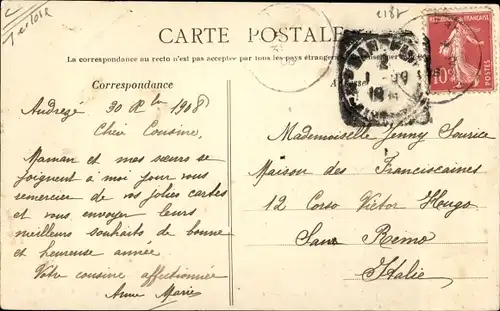 2181
CARTE POSTALE
La correspondance au recto n'est pas acceptée par tous les pays étrangers
Correspondance
REPUBLIQUE FRANCAISE
10
Andrezé 30 Xbre 1908
Chère Cousine,
Maman et mes sœurs se
joignent à moi pour vous
remercier de vos jolies cartes
et vous envoyer leurs
meilleurs souhaits de bonne
et heureuse année
Votre cousine affectionnée
Anne Marie
Mademoiselle Jenny Sourice
Maison des Franciscaines
12 Corso Victor Hugo
San Remo
Italie